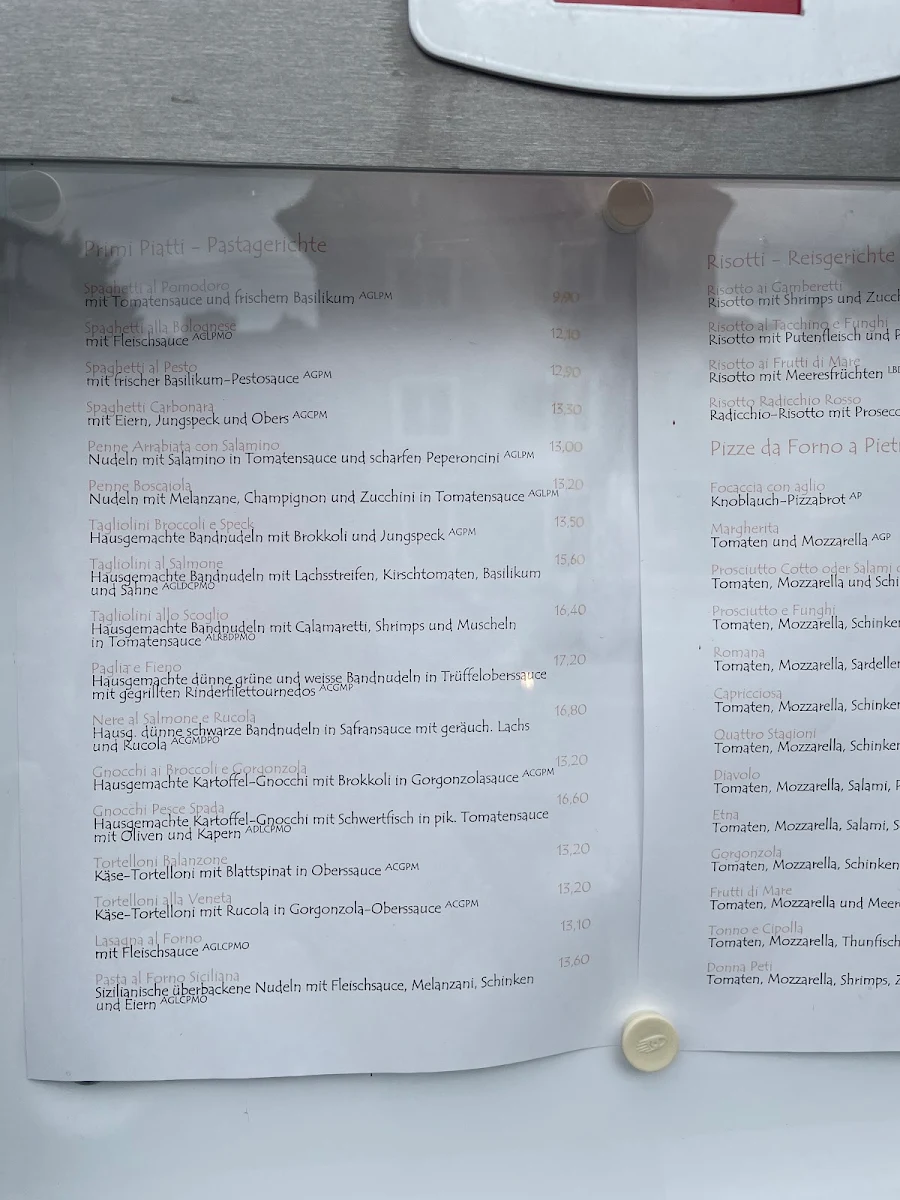 Primi Piatti - Pastagerichte
Spaghetti al Pomodoro
mit Tomatensauce und frischem Basilikum AGLPM 9,90
Spaghetti alla Bolognese
mit Fleischsauce AGLPMO 12,10
Spaghetti al Pesto
mit frischer Basilikum-Pestosauce AGPM 12,90
Spaghetti Carbonara
mit Eiern, Jungspeck und Obers AGCPM 13,30
Penne Arrabiata con Salamino 13,00
Nudeln mit Salamino in Tomatensauce und scharfen Peperoncini AGLPM
Penne Boscaiola 13,20
Nudeln mit Melanzane, Champignon und Zucchini in Tomatensauce AGLPM
Tagliolini Broccoli e Speck 13,50
Hausgemachte Bandnudeln mit Brokkoli und Jungspeck AGPM
Tagliolini al Salmone 15,60
Hausgemachte Bandnudeln mit Lachsstreifen, Kirschtomaten, Basilikum
und Sahne AGLDCPMO
Tagliolini allo Scoglio 16,40
Hausgemachte Bandnudeln mit Calamaretti, Shrimps und Muscheln
in Tomatensauce ALRBDPMO
Paglia e Fieno 17,20
Hausgemachte dünne grüne und weisse Bandnudeln in Trüffeloberssauce
mit gegrillten Rinderfilettournedos ACGMP
Nere al Salmone e Rucola 16,80
Hausg. dünne schwarze Bandnudeln in Safransauce mit geräuch. Lachs
und Rucola ACGMDPO
Gnocchi ai Broccoli e Gorgonzola 13,20
Hausgemachte Kartoffel-Gnocchi mit Brokkoli in Gorgonzolasauce ACGPM
Gnocchi Pesce Spada 16,60
Hausgemachte Kartoffel-Gnocchi mit Schwertfisch in pik. Tomatensauce
mit Oliven und Kapern ADLCPMO
Tortelloni Balanzone 13,20
Käse-Tortelloni mit Blattspinat in Oberssauce ACGPM
Tortelloni alla Veneta 13,20
Käse-Tortelloni mit Rucola in Gorgonzola-Oberssauce ACGPM
Lasagna al Forno 13,10
mit Fleischsauce AGLCPMO
Pasta al Forno Siciliana 13,60
Sizilianische überbackene Nudeln mit Fleischsauce, Melanzani, Schinken
und Eiern AGLCPMO
Risotti - Reisgerichte
Risotto ai Gamberetti
Risotto mit Shrimps und Zucc
Risotto al Tacchino e Funghi
Risotto mit Putenfleisch und P
Risotto ai Frutti di Mare
Risotto mit Meeresfrüchten
Risotto Radicchio Rosso
Radicchio-Risotto mit Prosecc
Pizze da Forno a Piet
Focaccia con aglio
Knoblauch-Pizzabrot AP
Margherita
Tomaten und Mozzarella AGP
Prosciutto Cotto oder Salami
Tomaten, Mozzarella und Schi
Prosciutto e Funghi
Tomaten, Mozzarella, Schinken
Romana
Tomaten, Mozzarella, Sardellen
Capricciosa
Tomaten, Mozzarella, Schinken
Quattro Stagioni
Tomaten, Mozzarella, Schinken
Diavolo
Tomaten, Mozzarella, Salami, P
Etna
Tomaten, Mozzarella, Salami, S
Gorgonzola
Tomaten, Mozzarella, Schinken
Frutti di Mare
Tomaten, Mozzarella und Meer
Tonno e Cipolla
Tomaten, Mozzarella, Thunfisch
Donna Peti
Tomaten, Mozzarella, Shrimps, Z